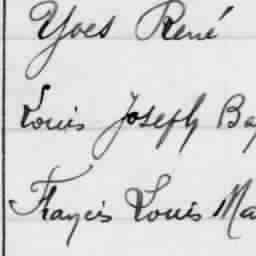 Yves René
Louis Joseph Ba
Francis Louis Ma